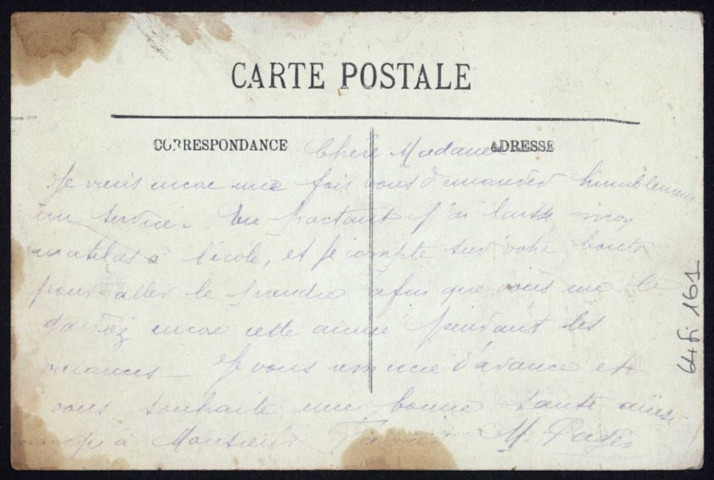 CARTE POSTALE
CORRESPONDANCE
ADRESSE
Chère Madame
Je viens encore une fois vous demander humblement
un service. En partant j'ai laissé mon
matelas à l'école, et je compte sur votre bonté
pour aller le prendre afin que vous me le
gardiez encore cette année pendant les
vacances – Je vous remercie d'avance et
vous souhaite une bonne santé ainsi
qu'à Monsieur M. Pagès
64 Fi 161